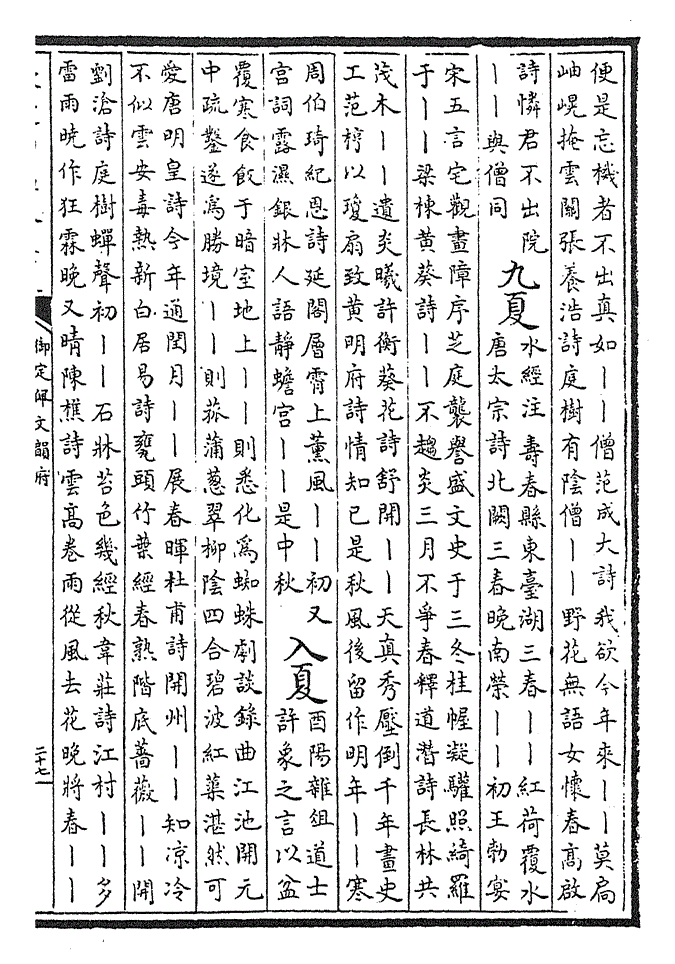 便是忘機者不出真如丨丨僧范成大詩我欲今年來丨丨莫扃
岫幌掩雲關張養浩詩庭樹有陰僧丨丨野花無語女懷春高啟
詩憐君不出院
丨丨與僧同
九夏
水經注壽春縣東臺湖三春丨丨紅荷覆水
唐太宗詩北闕三春晚南榮丨丨初王勃宴
宋五言宅觀畫障序芝庭襲譽盛文史于三冬桂幄凝驩照綺羅
于丨丨梁棟黃葵詩丨丨不趨炎三月不爭春釋道潛詩長林共
茂木丨丨遺炎曦許衡葵花詩舒開丨丨天真秀壓倒千年畫史
工范梈以瓊扇致黃明府詩情知已是秋風後留作明年丨丨寒
周伯琦紀恩詩延閣層霄上薰風丨丨初又
宫詞露濕銀牀人語静蟾宫丨丨是中秋
入夏
酉陽雜俎道士
許象之言以盆
覆寒食飯于暗室地上丨丨則悉化爲蜘蛛劇談錄曲江池開元
中疏鑿遂爲勝境丨丨則菰蒲葱翠柳陰四合碧波紅蕖湛然可
愛唐明皇詩今年通閏月丨丨展春暉杜甫詩開州丨丨知凉冷
不似雲安毒熱新白居易詩甕頭竹葉經春熟階底薔薇丨丨開
劉滄詩庭樹蟬聲初丨丨石牀苔色幾經秋韋莊詩江村丨丨多
雷雨曉作狂霖晚又晴陳樵詩雲高卷雨從風去花晚將春丨丨
御定佩文韻府
二十七